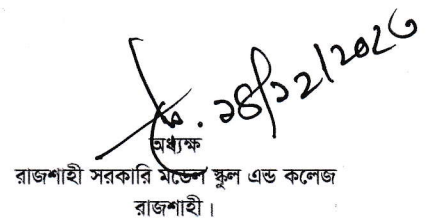 ২৪/১২/২০২৩
অধ্যক্ষ
রাজশাহী সরকারি মডেল স্কুল এন্ড কলেজ
রাজশাহী।